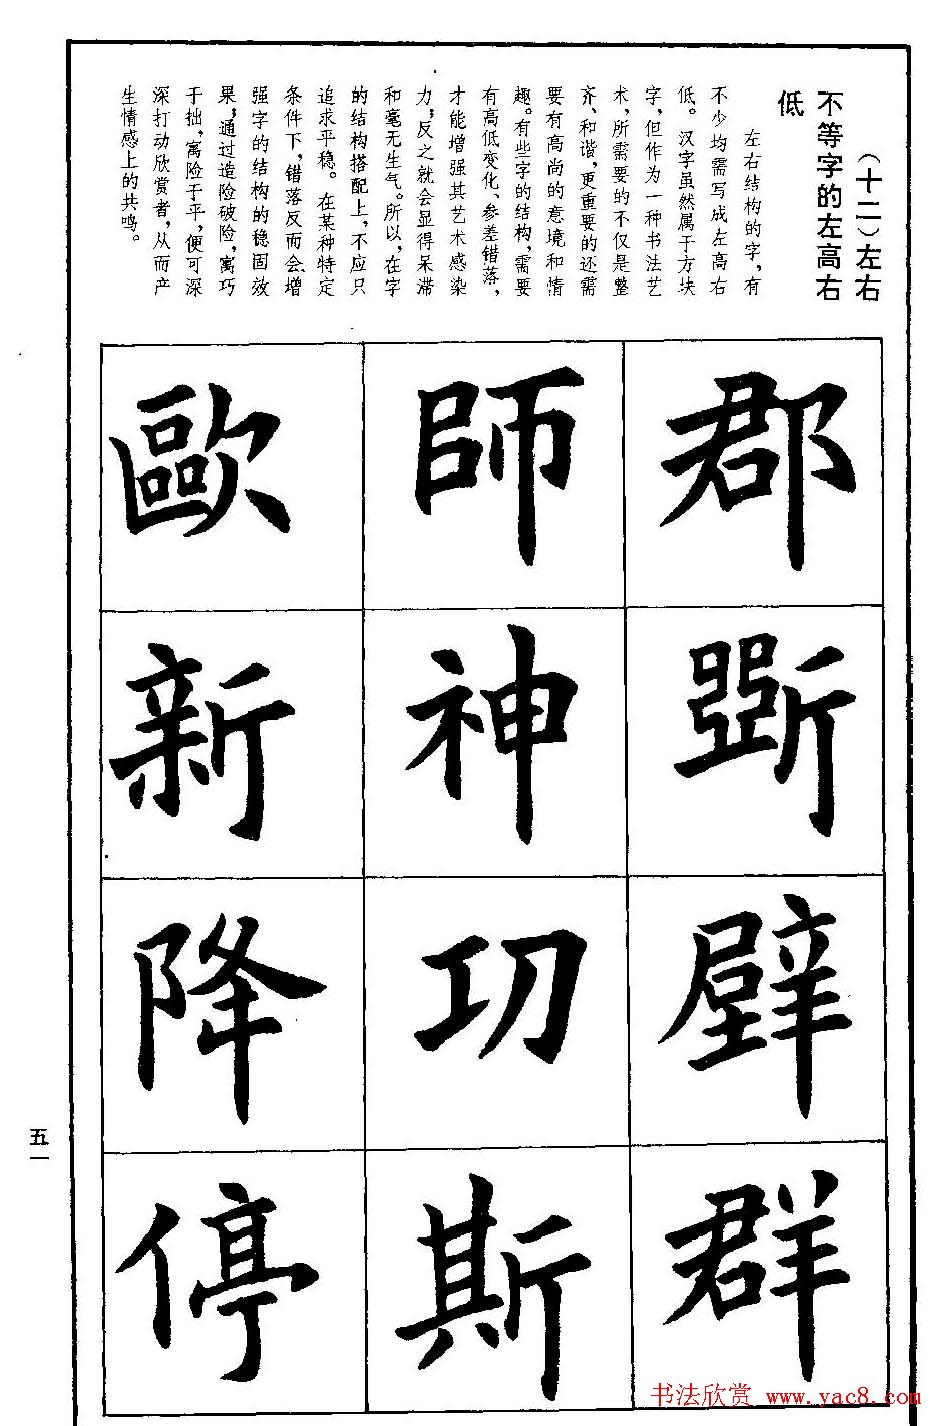 （十二）左右
不等字的左高右
低
左右结构的字，有
不少均需写成左高右
低。汉字虽然属于方块
字，但作为一种书法艺
术，所需要的不仅是整
齐、和谐，更重要的还需
要有高尚的意境和情
趣。有些字的结构，需要
有高低变化、参差错落，
才能增强其艺术感染
力，反之就会显得呆滞
和毫无生气。所以，在字
的结构搭配上，不应只
追求平稳。在某种特定
条件下，错落反而会增
强字的结构的稳固效
果，通过造险破险，寓巧
于拙，寓险于平，便可深
深打动欣赏者，从而产
生情感上的共鸣。
郡
壁
群
師
神
功
斯
歐
新
降
停
五一
书法欣赏 www.yac8.com